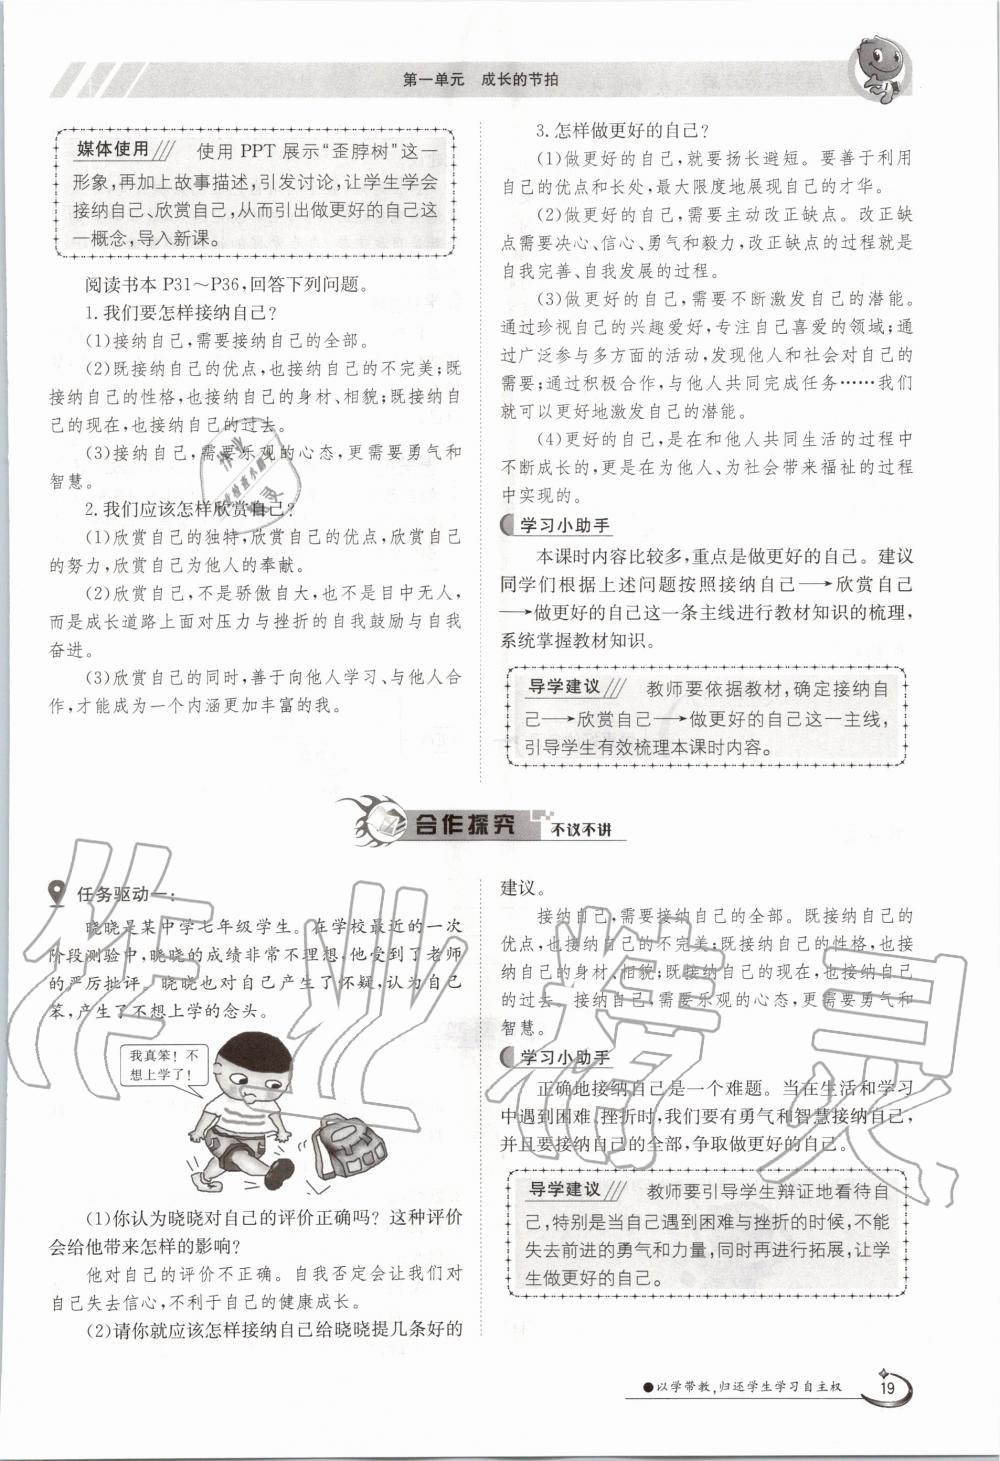 第一单元　成长的节拍
媒体使用 使用 PPT 展示“歪脖树”这一
形象,再加上故事描述,引发讨论,让学生学会
接纳自己、欣赏自己,从而引出做更好的自己这
一概念,导入新课。
阅读书本 P31～P36,回答下列问题。
1. 我们要怎样接纳自己?
(1)接纳自己,需要接纳自己的全部。
(2)既接纳自己的优点,也接纳自己的不完美;既
接纳自己的性格,也接纳自己的身材、相貌;既接纳自
己的现在,也接纳自己的过去。
(3)接纳自己,需要乐观的心态,更需要勇气和
智慧。
2. 我们应该怎样欣赏自己?
(1)欣赏自己的独特,欣赏自己的优点,欣赏自己
的努力,欣赏自己为他人的奉献。
(2)欣赏自己,不是骄傲自大,也不是目中无人,
而是成长道路上面对压力与挫折的自我鼓励与自我
奋进。
(3)欣赏自己的同时,善于向他人学习、与他人合
作,才能成为一个内涵更加丰富的我。
3. 怎样做更好的自己?
(1)做更好的自己,就要扬长避短。要善于利用
自己的优点和长处,最大限度地展现自己的才华。
(2)做更好的自己,需要主动改正缺点。改正缺
点需要决心、信心、勇气和毅力,改正缺点的过程就是
自我完善、自我发展的过程。
(3)做更好的自己,需要不断激发自己的潜能。
通过珍视自己的兴趣爱好,专注自己喜爱的领域;通
过广泛参与多方面的活动,发现他人和社会对自己的
需要;通过积极合作,与他人共同完成任务……我们
就可以更好地激发自己的潜能。
(4)更好的自己,是在和他人共同生活的过程中
不断成长的,更是在为他人、为社会带来福祉的过程
中实现的。
学习小助手
本课时内容比较多,重点是做更好的自己。建议
同学们根据上述问题按照接纳自己⟶欣赏自己
⟶做更好的自己这一条主线进行教材知识的梳理,
系统掌握教材知识。
导学建议 教师要依据教材,确定接纳自
己⟶欣赏自己⟶做更好的自己这一主线,
引导学生有效梳理本课时内容。
合作探究 不议不讲
任务驱动一:
晓晓是某中学七年级学生。在学校最近的一次
阶段测验中,晓晓的成绩非常不理想,他受到了老师
的严厉批评。晓晓也对自己产生了怀疑,认为自己
笨,产生了不想上学的念头。
我真笨！不
想上学了！
(1)你认为晓晓对自己的评价正确吗？这种评价
会给他带来怎样的影响?
他对自己的评价不正确。自我否定会让我们对
自己失去信心,不利于自己的健康成长。
(2)请你就应该怎样接纳自己给晓晓提几条好的
建议。
接纳自己,需要接纳自己的全部。既接纳自己的
优点,也接纳自己的不完美;既接纳自己的性格,也接
纳自己的身材、相貌;既接纳自己的现在,也接纳自己
的过去。接纳自己,需要乐观的心态,更需要勇气和
智慧。
学习小助手
正确地接纳自己是一个难题。当在生活和学习
中遇到困难、挫折时,我们要有勇气和智慧接纳自己,
并且要接纳自己的全部,争取做更好的自己。
导学建议 教师要引导学生辩证地看待自
己,特别是当自己遇到困难与挫折的时候,不能
失去前进的勇气和力量,同时再进行拓展,让学
生做更好的自己。
●以学带教,归还学生学习自主权
19
作业精灵